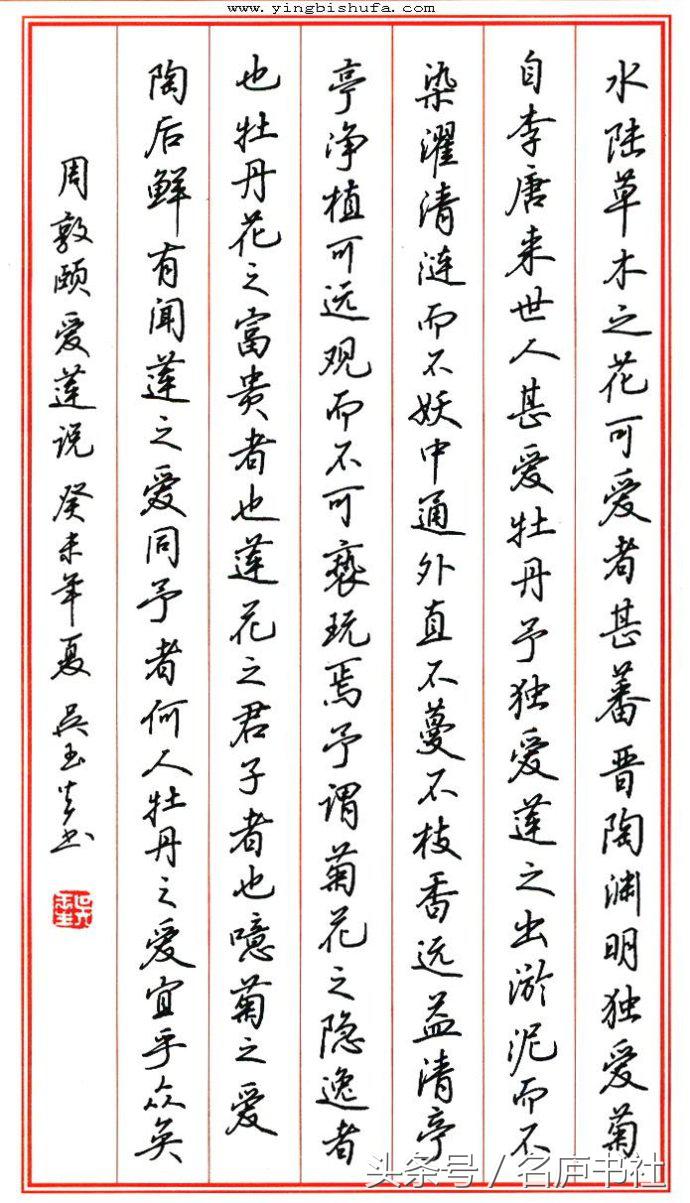 www.yingbishufa.com
水陆草木之花可爱者甚蕃晋陶渊明独爱菊
自李唐来世人甚爱牡丹予独爱莲之出淤泥而不
染濯清涟而不妖中通外直不蔓不枝香远益清亭
亭净植可远观而不可亵玩焉予谓菊花之隐逸者
也牡丹花之富贵者也莲花之君子者也噫菊之爱
陶后鲜有闻莲之爱同予者何人牡丹之爱宜乎众矣
周敦颐爱莲说 癸未年夏 吴玉生书
头条号 / 名庐书社